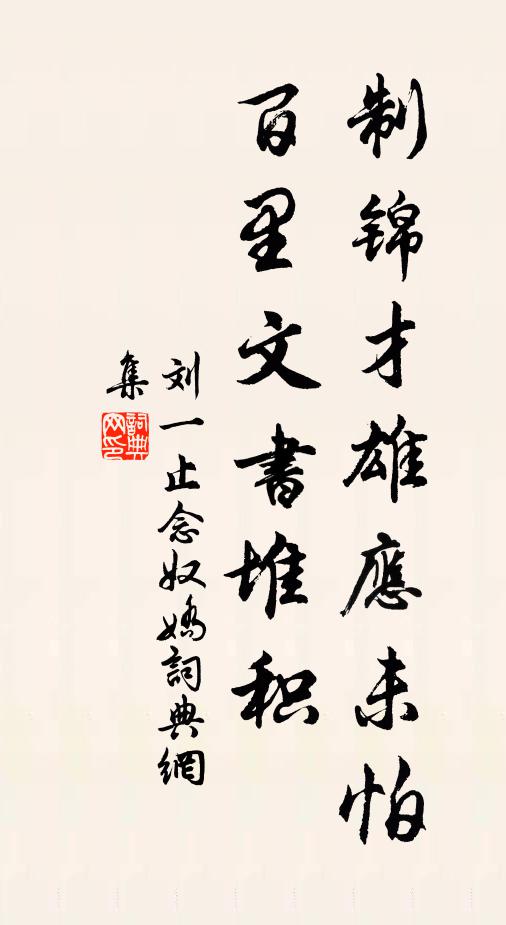 制锦才雄應未怕
百里文書堆积
刘一止念奴嬌詞典網
集
詞典网印